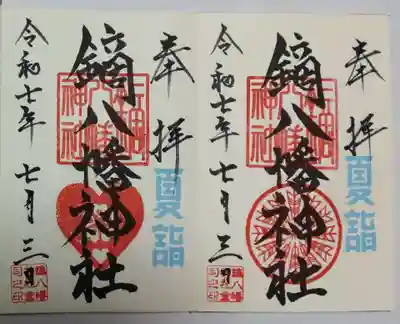 奉拝
夏詣
鏑八幡神社
令和七年七月三日
奉拝
夏詣
鏑八幡神社
令和七年七月三日